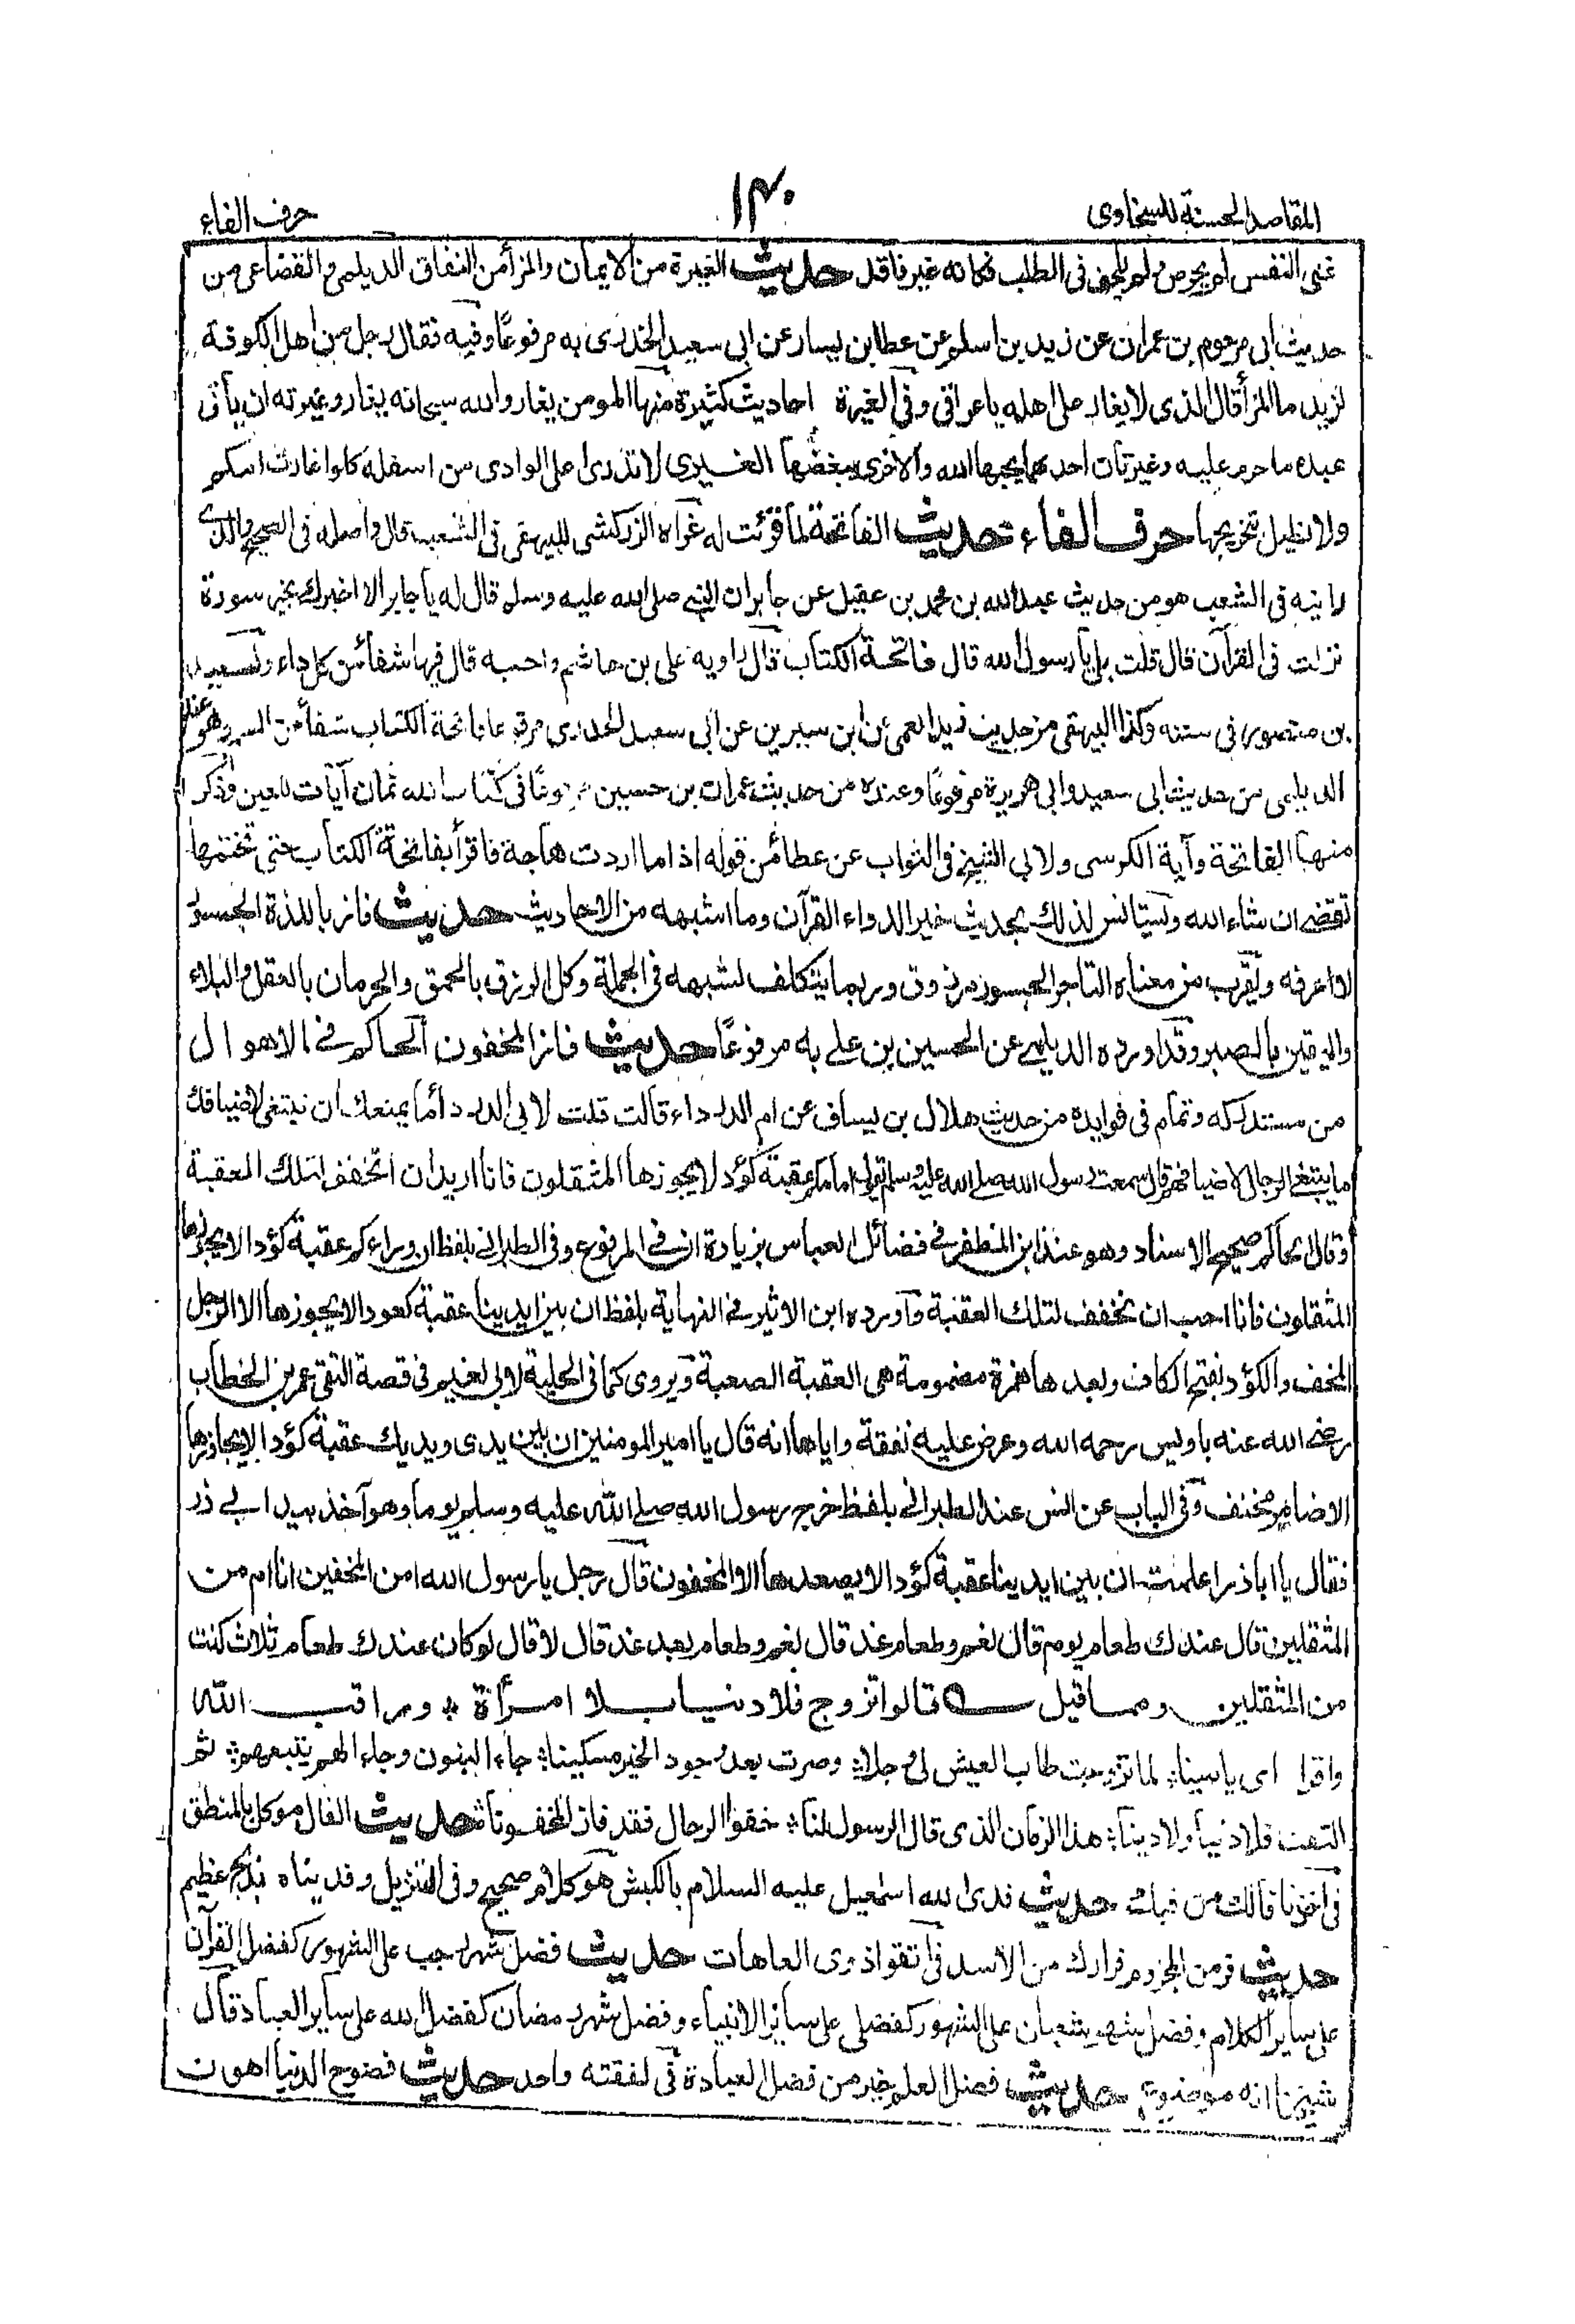 المقاصد الحسنة للسخاوى
١٤٠
حرف الفاء
غنى النفس لم يحرص ولم يلحف فى الطلب فكانه غير فاقد حديث الغيرة من الايمان والمزأ من النفاق الديلمى والقضاعى من
حديث ابى مرحوم بن عمران عن زيد بن اسلم عن عطا بن يسار عن ابى سعيد الخدرى به مرفوعًا وفيه فقال رجل من اهل الكوفة
لزيد ما المزأ قال الذى لا يغار على اهله يا عراقى وفى الغيرة احاديث كثيرة منها المومن يغار والله سبحانه يغار وغيرته ان يأتى
عبده ما حرم عليه وغيرتان احدهما يحبها الله والاخرى يبغضها الغيرى لا تدرى اعلى الوادى من اسفله كلوا غارت امكم
ولا نطيل تخريجها حرف الفاء حديث الفاتحة لما قرئت له عزاه الزركشى للبيهقى فى الشعب قال واصله فى الصحيح والذى
رايته فى الشعب هو من حديث عبد الله بن محمد بن عقيل عن جابر ان النبى صلى الله عليه وسلم قال له يا جابر الا اخبرك بخير سورة
نزلت فى القرآن قال قلت بلى يا رسول الله قال فاتحة الكتاب قال راويه على بن هاشم واحسبه قال فيها شفأ من كل داء ولسعيد
بن منصور فى سننه وكذا البيهقى من حديث زيد العمى عن ابن سيرين عن ابى سعيد الخدرى مرفوعا فاتحة الكتاب شفأ من السم وهو عند
الديلمى من حديث ابى سعيد وابى هريرة مرفوعًا وعنده من حديث عمران بن حسين مرفوعًا فى كتاب الله ثمان آيات للعين وذكر
منها الفاتحة وآية الكرسى ولابى الشيخ فى الثواب عن عطأ من قوله اذا ما اردت حاجة فاقرأ بفاتحة الكتاب حتى تختتمها
تقضى ان شاء الله ويستانس لذلك بحديث خير الدواء القرآن وما اشبهه من الاحاديث حديث فاز باللذة الجسور
لا اعرفه ويقرب من معناه التاجر الجسور مرزوق وربما يتكلف لشبهه فى الجملة وكل الرزق بالحمق والحرمان بالعقل والبلاء
واليقين بالصبر وقد اورده الديلمى عن الحسين بن على به مرفوعًا حديث فاز المخفون الحاكم فى الاهوال
من مستدركه وتمام فى فوايده من حديث هلال بن يساف عن ام الدرداء قالت قلت لابى الدردأ ما يمنعك ان تبتغى لاضيافك
ما يبتغى الرجال لاضيافهم قال سمعت رسول الله صلى الله عليه وسلم يقول امامكم عقبة كؤد لا يجوزها المثقلون فانا اريد ان اتخفف لتلك العقبة
وقال الحاكم صحيح الاسناد وهو عند ابن المظفر فى فضائل العباس بزيادة ان فى المرفوع وفى الطبرانى بلفظ ان وراءكم عقبة كؤدا لا يجوزها
المثقلون فانا احب ان تخفف لتلك العقبة واورده ابن الاثير فى النهاية بلفظ ان بين ايدينا عقبة كعودا لا يجوزها الا الرجل
المخف والكؤد بفتح الكاف وبعدها همزة مضمومة هى العقبة الصعبة ويروى كما فى الحلية لابى نعيم فى قصة التقى عمر بن الخطاب
رضى الله عنه باويس رحمه الله وعرض عليه نفقة واياها انه قال يا امير المومنين ان بين يدى ويديك عقبة كؤدا لا يجاوزها
الا ضامر مخفف وفى الباب عن انس عند الطبرانى بلفظ خرج رسول الله صلى الله عليه وسلم يوما وهو آخذ بيد ابى ذر
فقال يا ابا ذر اعلمت ان بين ايدينا عقبة كؤدا لا يصعدها الا المخفون قال رجل يا رسول الله امن المخفين انا ام من
المثقلين قال عندك طعام يوم قال نعم وطعام غد قال نعم وطعام بعد غد قال لا قال لو كان عندك طعام ثلاث كنت
من المثقلين ومما قيل قالوا تزوج فلا دنيا بلا امرأة وراقب الله
واقرا اى ياسينا لما تزوجت طاب العيش لى وحلا وصرت بعد وجود الخير مسكينا جاء البنون وجاء الهم يتبعهم ثم
التفت فلا دنيا ولا دينا هذا الزمان الذى قال الرسول لنا خفوا الرحال فقد فاز المخفونا حديث الفال موكل بالمنطق
فى اخذنا فالك من فيك حديث فدى الله اسمعيل عليه السلام بالكبش هو كلام صحيح وفى التنزيل وفديناه بذبح عظيم
حديث فر من المجزوم فرارك من الاسد فى اتقوا ذوى العاهات حديث فضل شهر رجب على الشهور كفضل القرآن
على ساير الكلام وفضل شهر شعبان على الشهور كفضلى على سائر الانبياء وفضل شهر رمضان كفضل الله على ساير العباد قال
شيخنا انه موضوع حديث فضل العلم خير من فضل العبادة فى لفقته واحد حديث فضوح الدنيا اهون